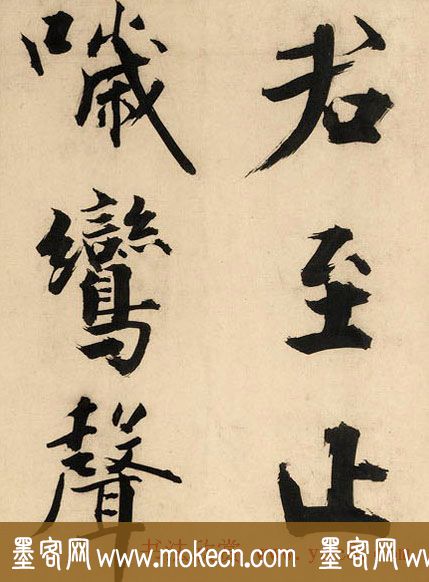 君至止
噦鸞聲
墨客网 www.mokecn.com 墨客网